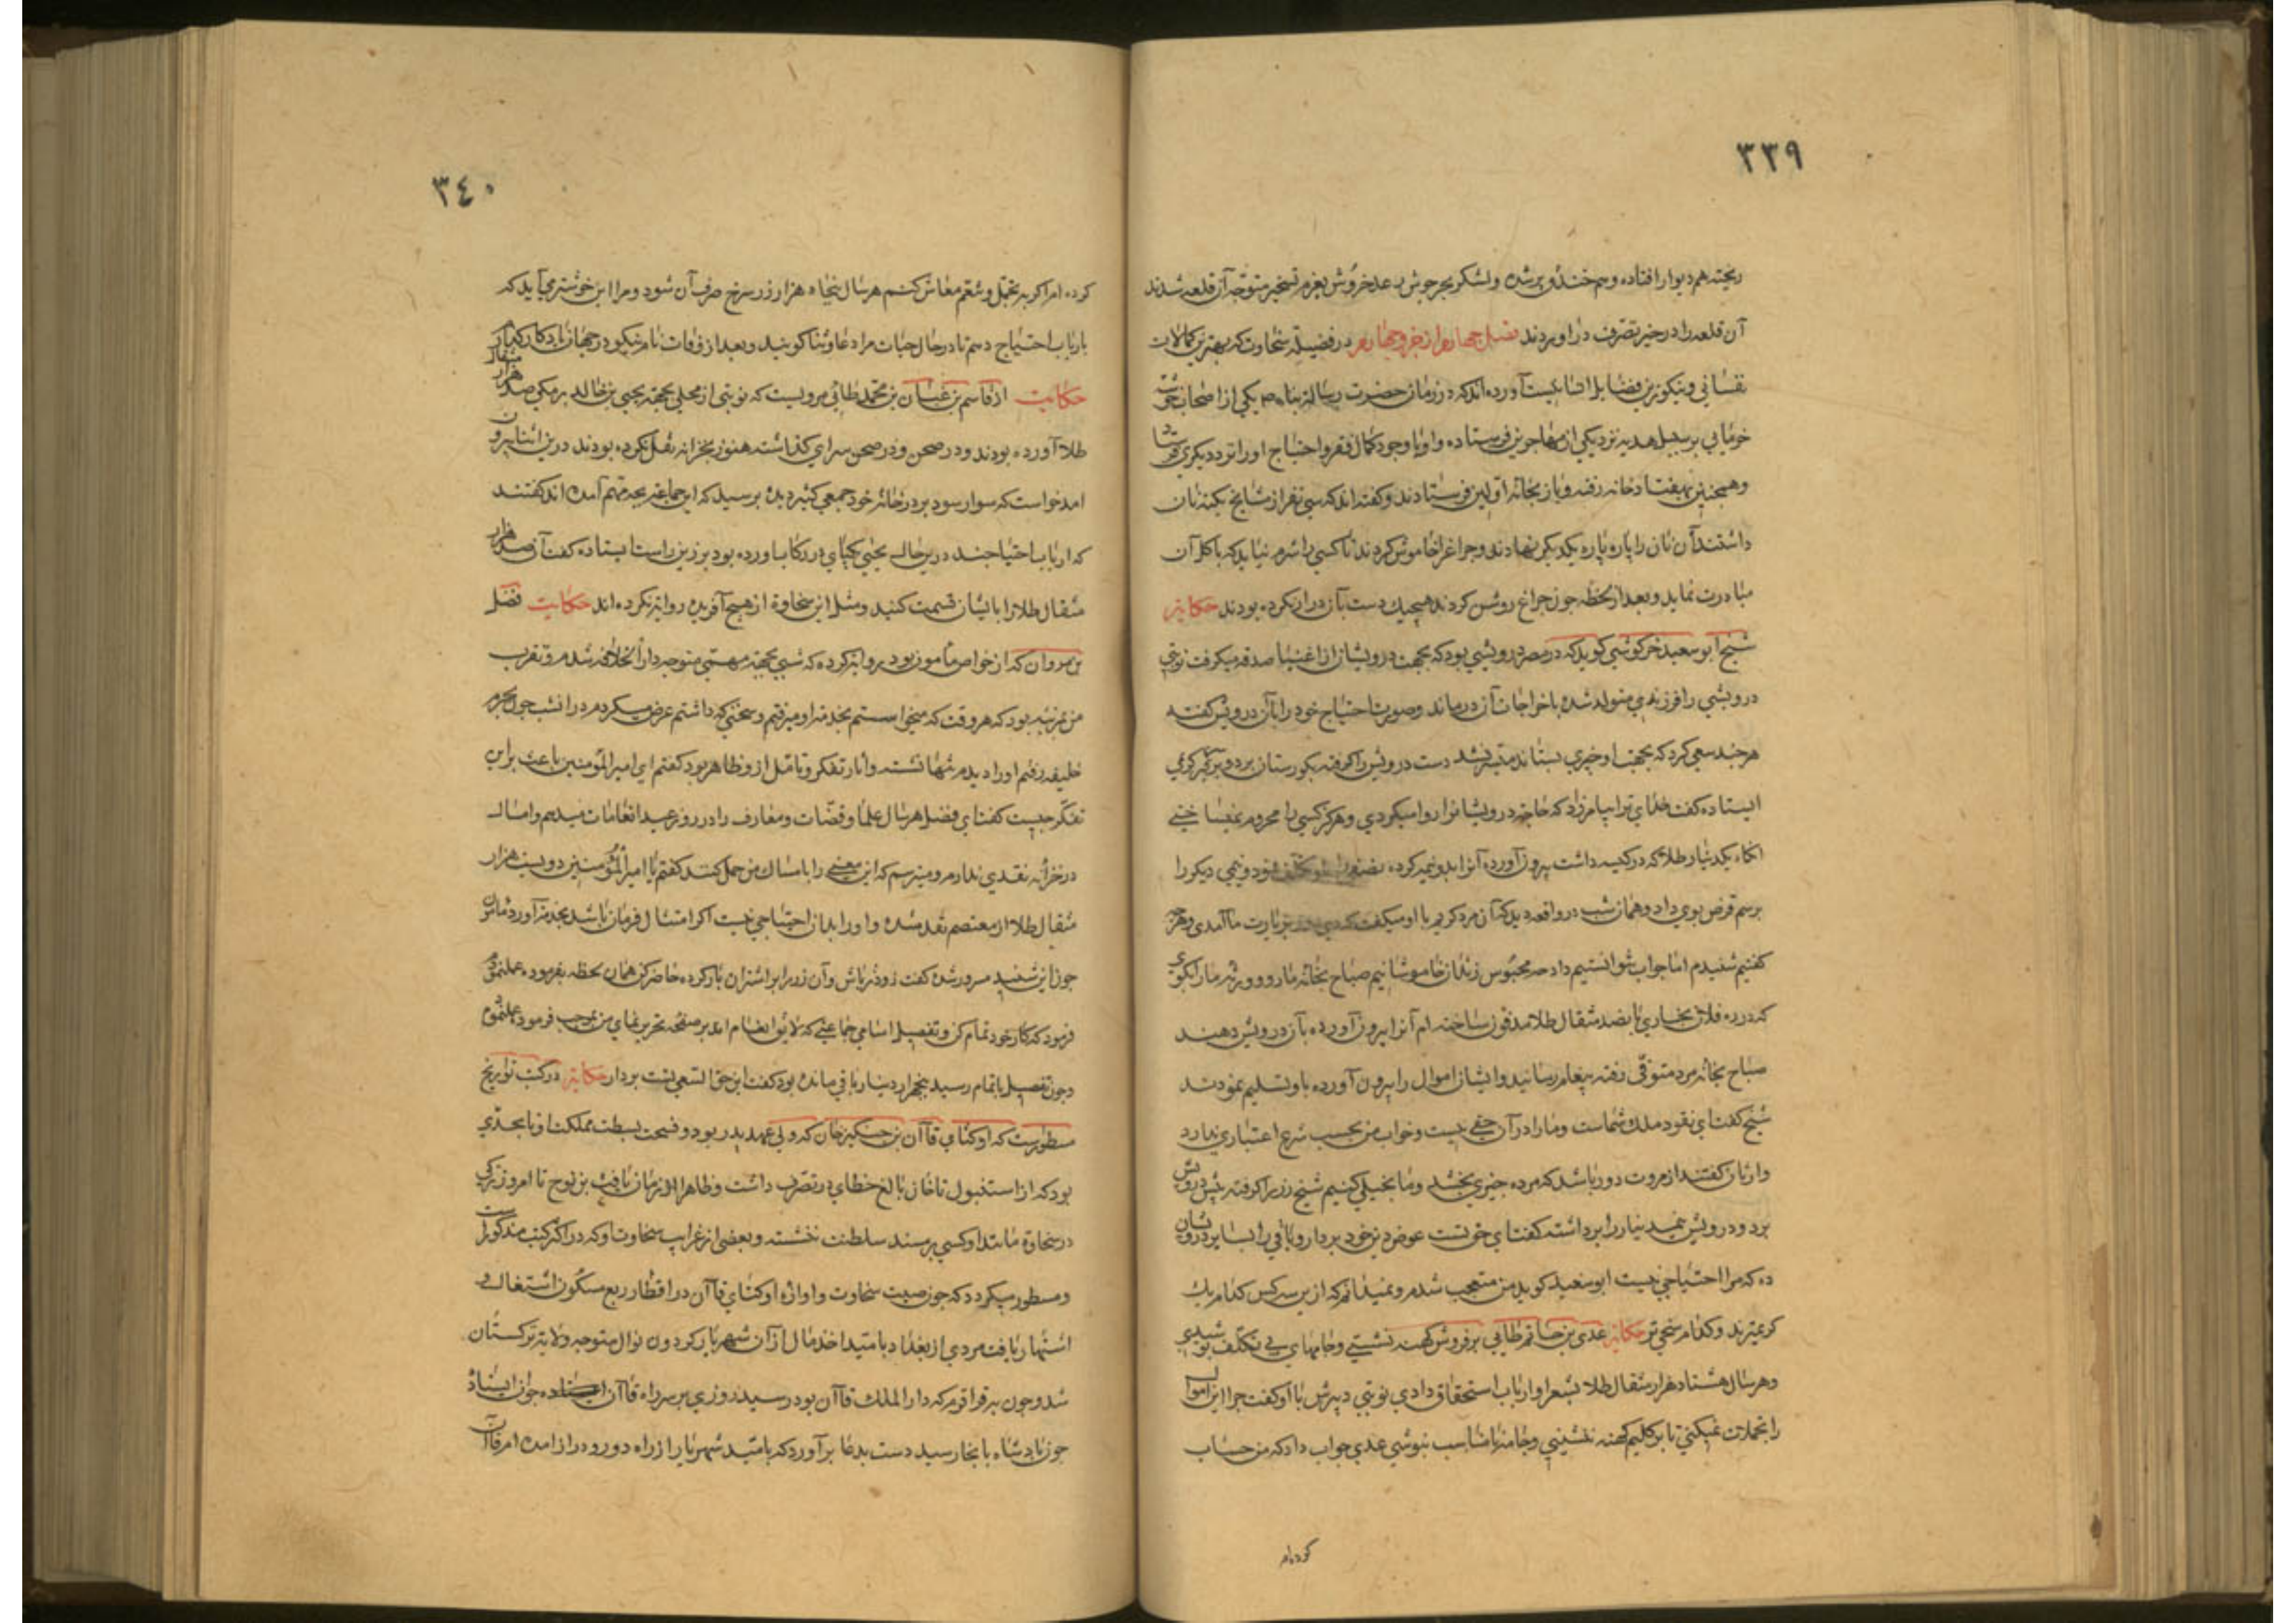 ٣٣٩
ریخته هم دیوار افتاده و هم خندق پر شده ولشکر بحر جوش رعد خروش بعزم تسخیر متوجّه آن قلعه شدند
آن قلعه را در حیز تصرّف در اوردند فصل چهارم از جزو چهارم در فضیلة سخاوت که بهترین کمالات
نفسانی و نیکوترین فضایل انسانیست آورده اند که در زمان حضرت رسالة پناه ص یکی از اصحاب
خرمایی بر سبیل هدیه نزد یکی از مهاجرین فرستاده و او با وجود کمال فقر و احتیاج اورا نزد دیگری
وهمچنین بهفتاد خانه رفته و باز بخانهٔ اوّلین فرستادند و کفته اند که سی نفر از مشایخ یکته نان
داشتند آن نان را پاره پاره یکدیکر نهادند وچراغ را خاموش کردند تا کسی را شرم نیاید که باکل آن
مبادرت نماید و بعد از لحظه چون چراغ روشن کردند هیچیک دست بآن دراز نکرده بودند حکایة
شیخ ابو سعید خرکوشی کوید که در مصر درویشی بود که بجهت درویشان از اغنیا صدقه میکرفت نوبتی
درویشی را فرزندی متولد شده باخراجات آن درماند وصورت احتیاج خود را بآن درویش کفته
هر چند سعی کرد که بجهت او چیزی بستاند میسّر نشد دست درویش را کرفته بکورستان برد و بر سر کوری
ایستاده کفت خدای ترا بیامرزاد که حاجة درویشانرا روا میکردی وهرکز کسی را محروم نمیساختی
انکاه یکدینار طلا که در کیسه داشت بیرون آورده آنرا بدو نیمه کرده نصفی ونیمی دیکر را
برسم قرض بوی داد و همان شب در واقعه دید که آن مرد کریم با او میکفت بزیارت ما آمدی
کفتیم شنیدم اما جواب نتوانستیم داد چه محبوس زندان خاموشانیم صباح بخانهٔ ما رو و ورثهٔ مارا بکوی
که در ده فلان بخاری پانصد مثقال طلا مدفون ساخته ام آنرا بیرون آورده بآن درویش دهند
صباح بخانهٔ مرد متوفّی رفته پیغام رسانید وایشان اموال را بیرون آورده باو تسلیم نمودند
شیخ کفت این نقود ملک شماست ومارا در آن حقی نیست وخواب من بحسب شرع اعتباری ندارد
وارثان کفتند از مروت دور باشد که مرده چیزی بخشد وما بخیلی کنیم شیخ زر را کرفته پیش درویش
برد و درویش نیمدینار را برداشته کفت این حق تست عوض دین خود بردار و باقی را بسایر درویشان
ده که مرا احتیاجی نیست ابو سعید کوید من متعجب شدم ونمیدانم که ازین سه کس کدام یک
کریمترند وکدام سخی تر حکایة عدی بن حاتم طایی بر فروش کهنه نشستی وجامهای بی تکلّف پوشیدی
وهر سال هشتاد هزار مثقال طلا بشعرا وارباب استحقاق دادی نوبتی دبیرش با او کفت چرا این اموال
را تجملات نمیکنی تا بر کلیم کهنه ننشینی وجامهٔ نامناسب نپوشی عدی جواب داد که من حساب
کرده ام
٣٤٠
کرده ام اکر به تجمّل و تنعّم معاش کنم هر سال پنجاه هزار زر سرخ صرف آن شود ومرا این خوشتر می آید که
بارباب احتیاج دهم تا در حال حیات مرا دعا و ثنا کویند وبعد از وفات نام نیکو در جهان یادکار
حکایت از قاسم بن غسان بن محمّد طائی مرویست که نوبتی از محلی بجهة یحیی بن خالد برمکی صد هزار مثقال
طلا آورده بودند ودر صحن ودر صحن سرای کذاشته هنوز بخزانه نقل نکرده بودند درین اثنا بیرون
امد خواست که سوار سود بر در خانهٔ خود جمعی کثیر دید پرسید که این جماعة بچه مهم آمده اند کفتند
که ارباب احتیاجند درین حالت یحیی یکپای در رکاب اورده بود بر زین راست ایستاده کفت آن صد هزار
مثقال طلا را با ایشان قسمت کنید ومثل این سخاوة از هیچ آفریده روایة نکرده اند حکایت فضل
بن مروان که از خواص مأمون بود روایة کرده که شبی بجهة مهمی متوجه دار الخلافه شدم و تقرب
من بمرتبه بود که هر وقت که میخواستم بخدمة او میرفتم و سخنی که داشتم عرض میکردم در انشب چون بحرم
خلیفه رفتم اورا دیدم تنها نشسته وآثار تفکر وتامّل ازو ظاهر بود کفتم ای امیر المؤمنین باعث برین
تفکّر چیست کفت ای فضل هر سال علما وقضّات ومعارف را در روز عید انعامات میدهم وامسال
در خزانه نقدی ندارم ومیترسم که این معنی را بامساک من حمل کنند کفتم یا امیر المؤمنین دویست هزار
مثقال طلا از معتصم نقد شده و اورا بدان احتیاجی نیست اکر امتثال فرمان باشد بخدمة آورد
چون این شنید مسرور شده کفت زود تر باش وآن زر را بر اشتران بار کرده حاضر کن همان لحظه بفرموده عمل نموده
فرمود که کار خود تمام کن وتفصیل اسامی جماعتی که لایق انعام اند بر صفحه تحریر نمای من بموجب فرموده عمل نموده
وچون تفصیل باتمام رسید پنجهزار دینار باقی مانده بود کفت این حق السعی تست بردار حکایة در کتب تواریخ
مسطورست که اوکتای قاآن بن جنکیز خان که ولی عهد پدر بود و فسحت بسطت مملکت او تا بحدّی
بود که از استنبول تا خان بالغ خطای در تصرّف داشت وظاهرا از زمان یافث بن نوح تا امروز ترکی
در سخاوة مانند او کسی بر مسند سلطنت ننشسته وبعضی از غرایب سخاوت او که در اکثر کتب مذکورست
ومسطور میکردد که چون صیت سخاوت واوازهٔ اوکتای قاآن در اقطار ربع مسکون
اشتهار یافت مردی از بغداد بامّید اخذ مال از آن شهریار کردون نوال متوجه ولایة ترکستان
شد وچون بقراقوم که دار الملک قاآن بود رسید روزی بر سر راه قاآن
چون پادشاه بانجا رسید دست بدعا برآورد که بامّید شهریار از راه دور ودراز امده ام قاآن